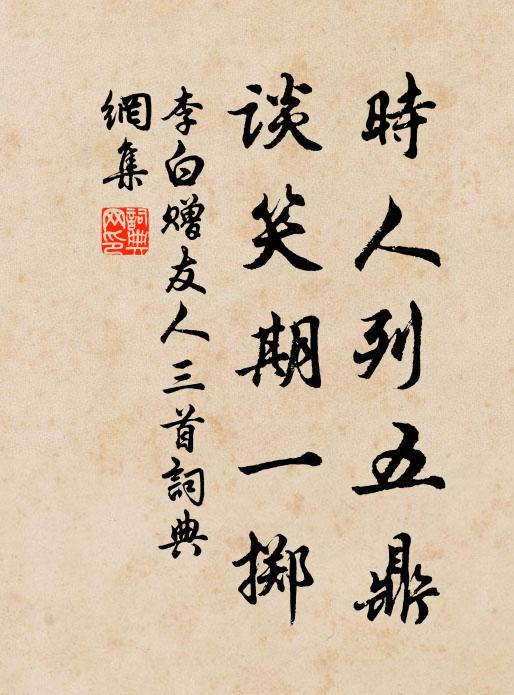 時人列五鼎
談笑期一擲
李白贈友人三首詞典
網集
詞典网印